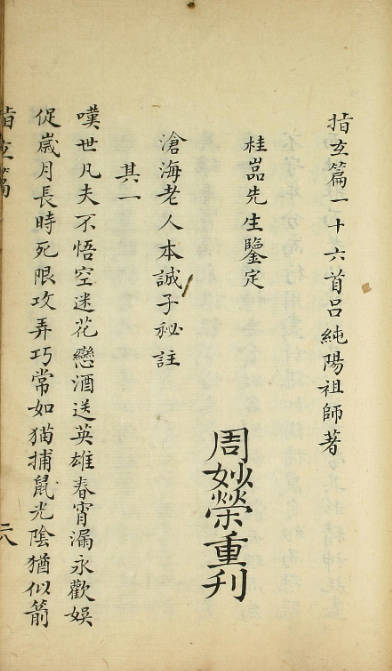 指玄篇一十六首呂純陽祖師著
桂嵓先生鑒定
周妙榮重刋
滄海老人本誠子秘註
其一
嘆世凡夫不悟空迷花戀酒送英雄春宵漏永歡娛
促嵗月長時死限攻弄巧常如猫捕鼠光陰猶似箭
指玄篇